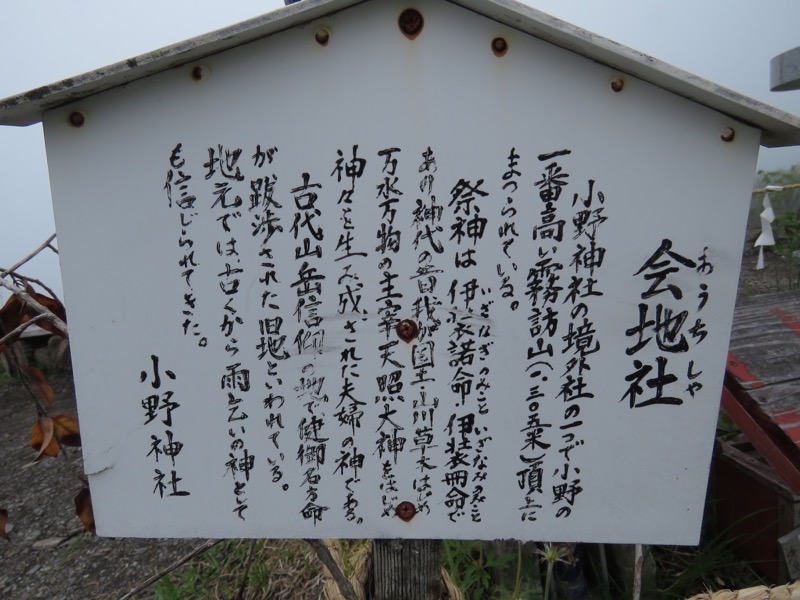 おうちしゃ
会地社
小野神社の境外社の一つで小野の
一番高い霧訪山(一・三〇五米)頂上に
まつられている。
祭神は 伊弉諾命・伊弉冊命で
いざなぎのみこと いざなみのみこと
あり神代の昔我が国土山川草木はじめ
万水万物の主宰天照大神をはじめ
神々を生み成された夫婦の神である。
古代山岳信仰の地で健御名方命
が跋渉された旧地といわれている。
地元では、古くから雨乞いの神として
も信じられてきた。
小野神社